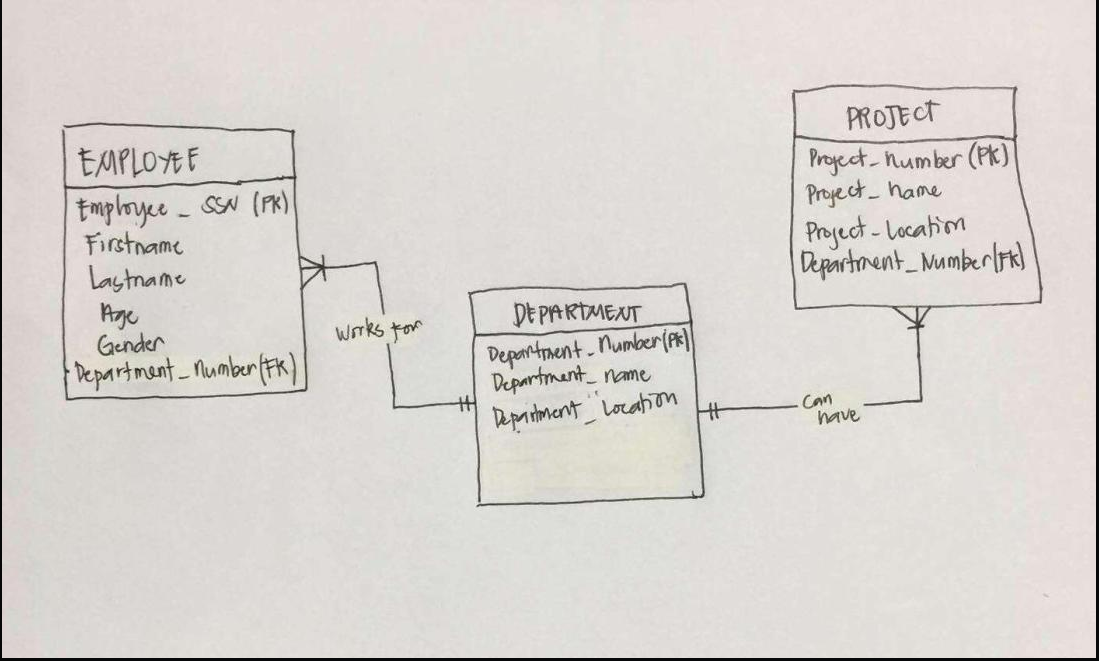 EMPLOYEE
Employee_SSN (PK)
Firstname
Lastname
Age
Gender
Department_Number(FK)
Works for
DEPARTMENT
Department_Number(PK)
Department_name
Department_Location
Can
have
PROJECT
Project_Number(PK)
Project_name
Project_Location
Department_Number(FK)